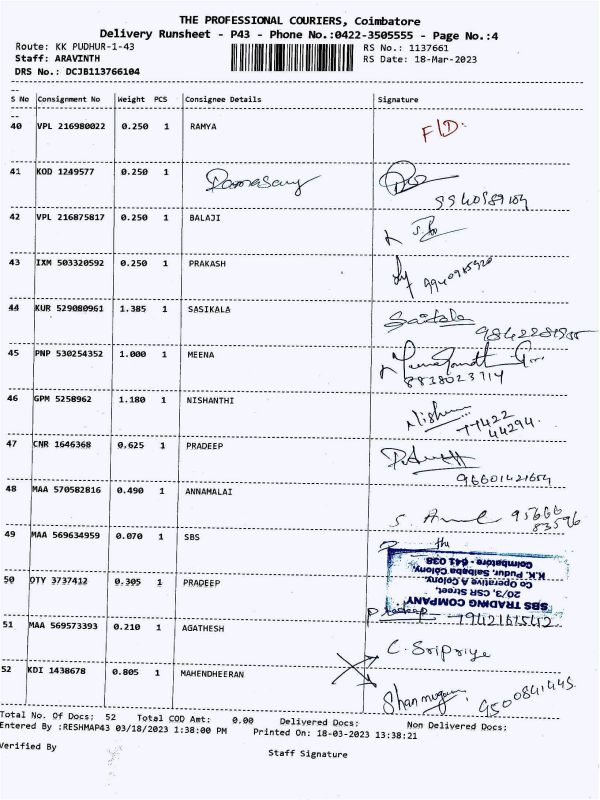 THE PROFESSIONAL COURIERS, Coimbatore
Delivery Runsheet - P43 - Phone No.:0422-3505555 - Page No.:4
Route: KK PUDHUR-1-43 RS No.: 1137661
Staff: ARAVINTH RS Date: 18-Mar-2023
DRS No.: DCJB113766104
S No Consignment No Weight PCS Consignee Details Signature
40 VPL 216980022 0.250 1 RAMYA F|D:
41 KOD 1249577 0.250 1
42 VPL 216875817 0.250 1 BALAJI
43 IXM 503320592 0.250 1 PRAKASH
44 KUR 529080961 1.385 1 SASIKALA
45 PNP 530254352 1.000 1 MEENA
8838023714
46 GPM 5258962 1.180 1 NISHANTHI
77422
44294
47 CNR 1646368 0.625 1 PRADEEP
48 MAA 570582816 0.490 1 ANNAMALAI
95666
83596
49 MAA 569634959 0.070 1 SBS
SBS TRADING COMPANY
20/3, CSR Street,
Co Operative A Colony,
K.K. Pudur, Saibaba Colony,
Coimbatore - 641 038
50 OTY 3737412 0.305 1 PRADEEP Pradeep
51 MAA 569573393 0.210 1 AGATHESH C. Sripriya
52 KDI 1438678 0.805 1 MAHENDHEERAN Shanmugam 9500841445
Total No. Of Docs: 52 Total COD Amt: 0.00 Delivered Docs: Non Delivered Docs:
Entered By :RESHMAP43 03/18/2023 1:38:00 PM Printed On: 18-03-2023 13:38:21
Verified By Staff Signature